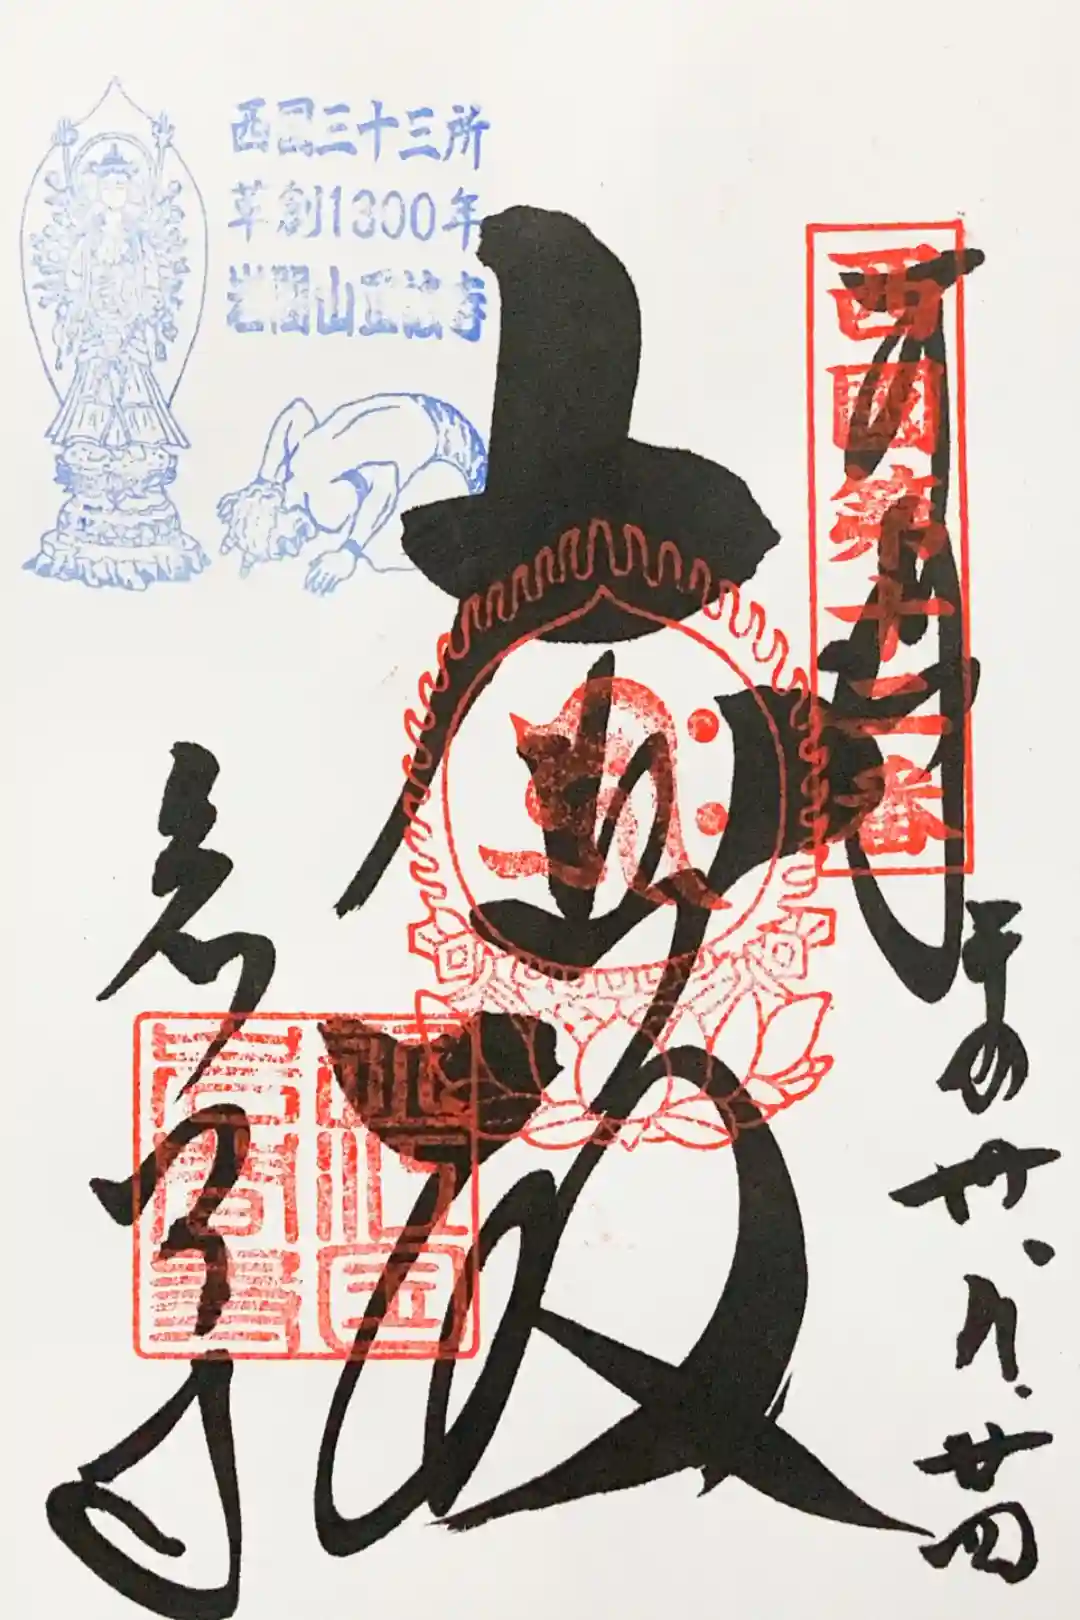 西国三十三所
草創1300年
岩間山正法寺
西國第十二番
奉拝
平成卅、月、廿四
大悲殿
岩間寺